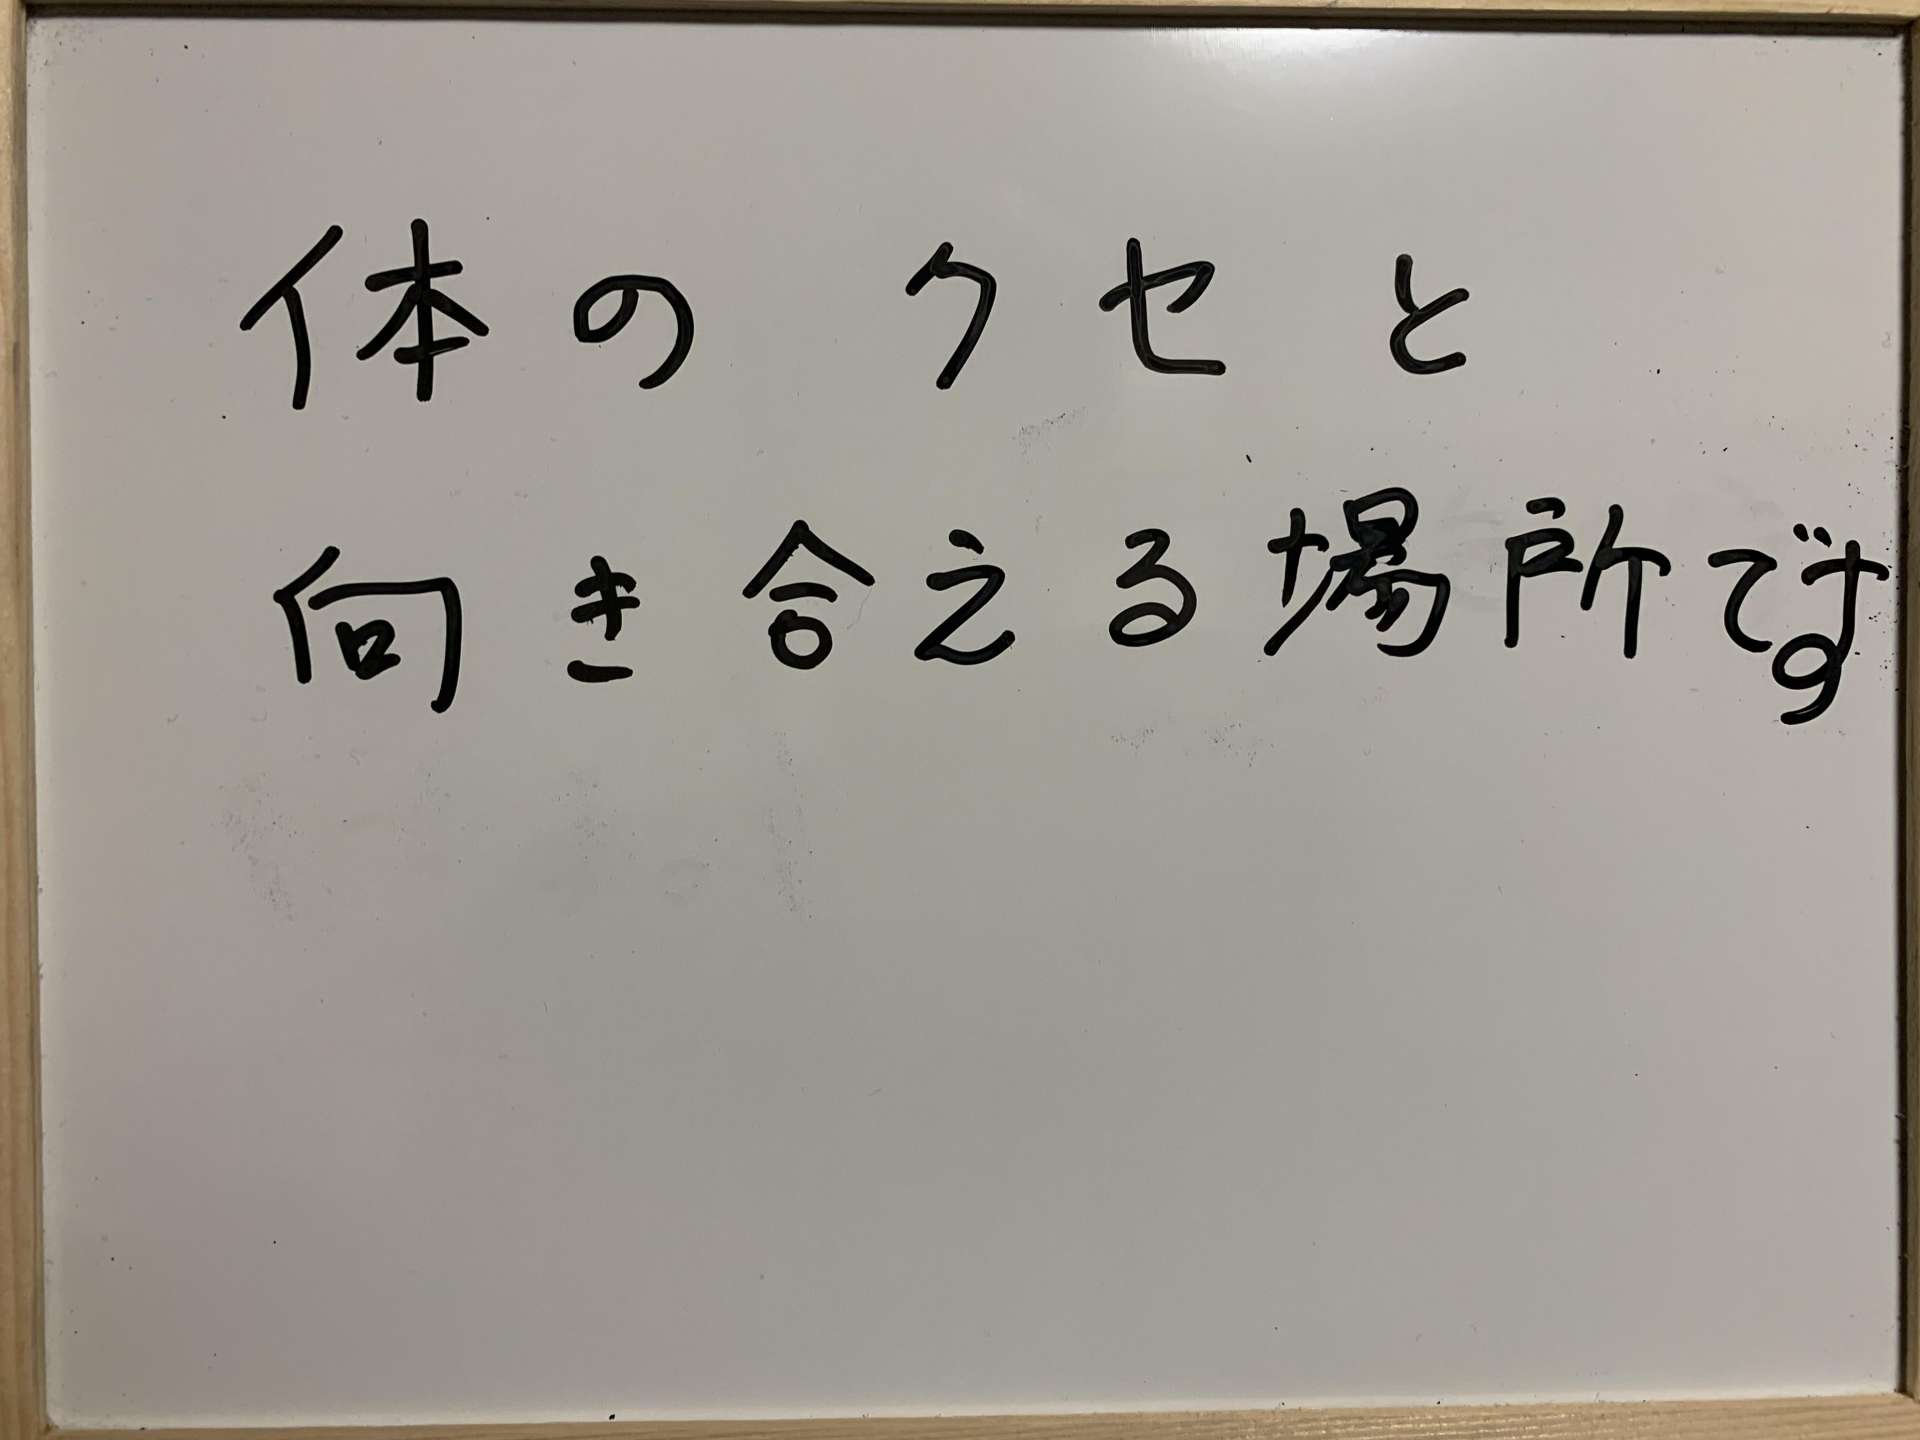 体のクセと
向き合える場所です